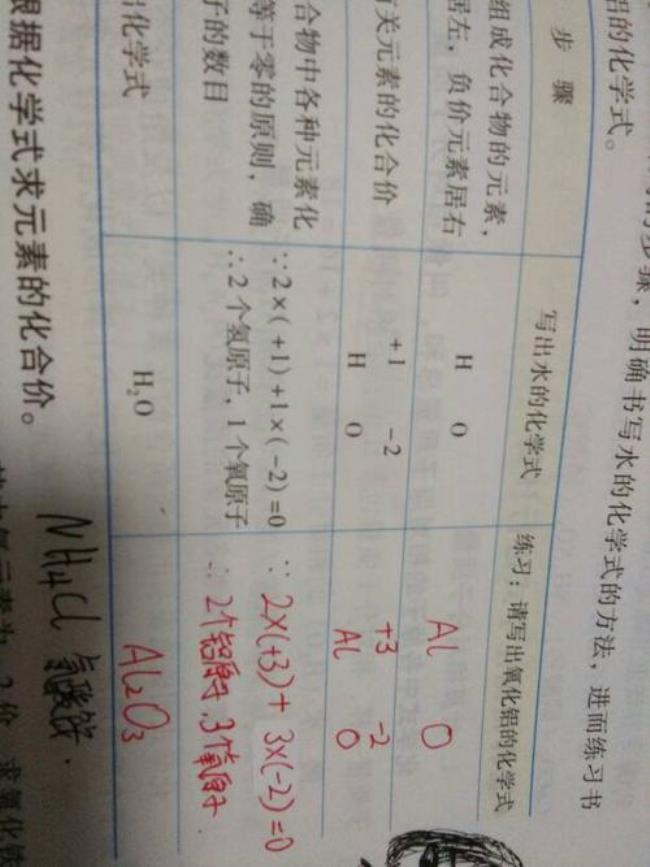 铝的化学式。
步骤，明确书写水的化学式的方法，进而练习书
步 骤 写出水的化学式 练习：请写出氧化铝的化学式
组成化合物的元素，
居左，负价元素居右
H O
Al O
有关元素的化合价
+1 -2
H O
+3 -2
Al O
合物中各种元素化
等于零的原则，确
子的数目
∵2×(+1)+1×(-2)=0
∴2个氢原子，1个氧原子
∵ 2×(+3)+3×(-2)=0
∴ 2个铝原子,3个氧原子
化学式 H₂O Al₂O₃
根据化学式求元素的化合价。
NH4Cl